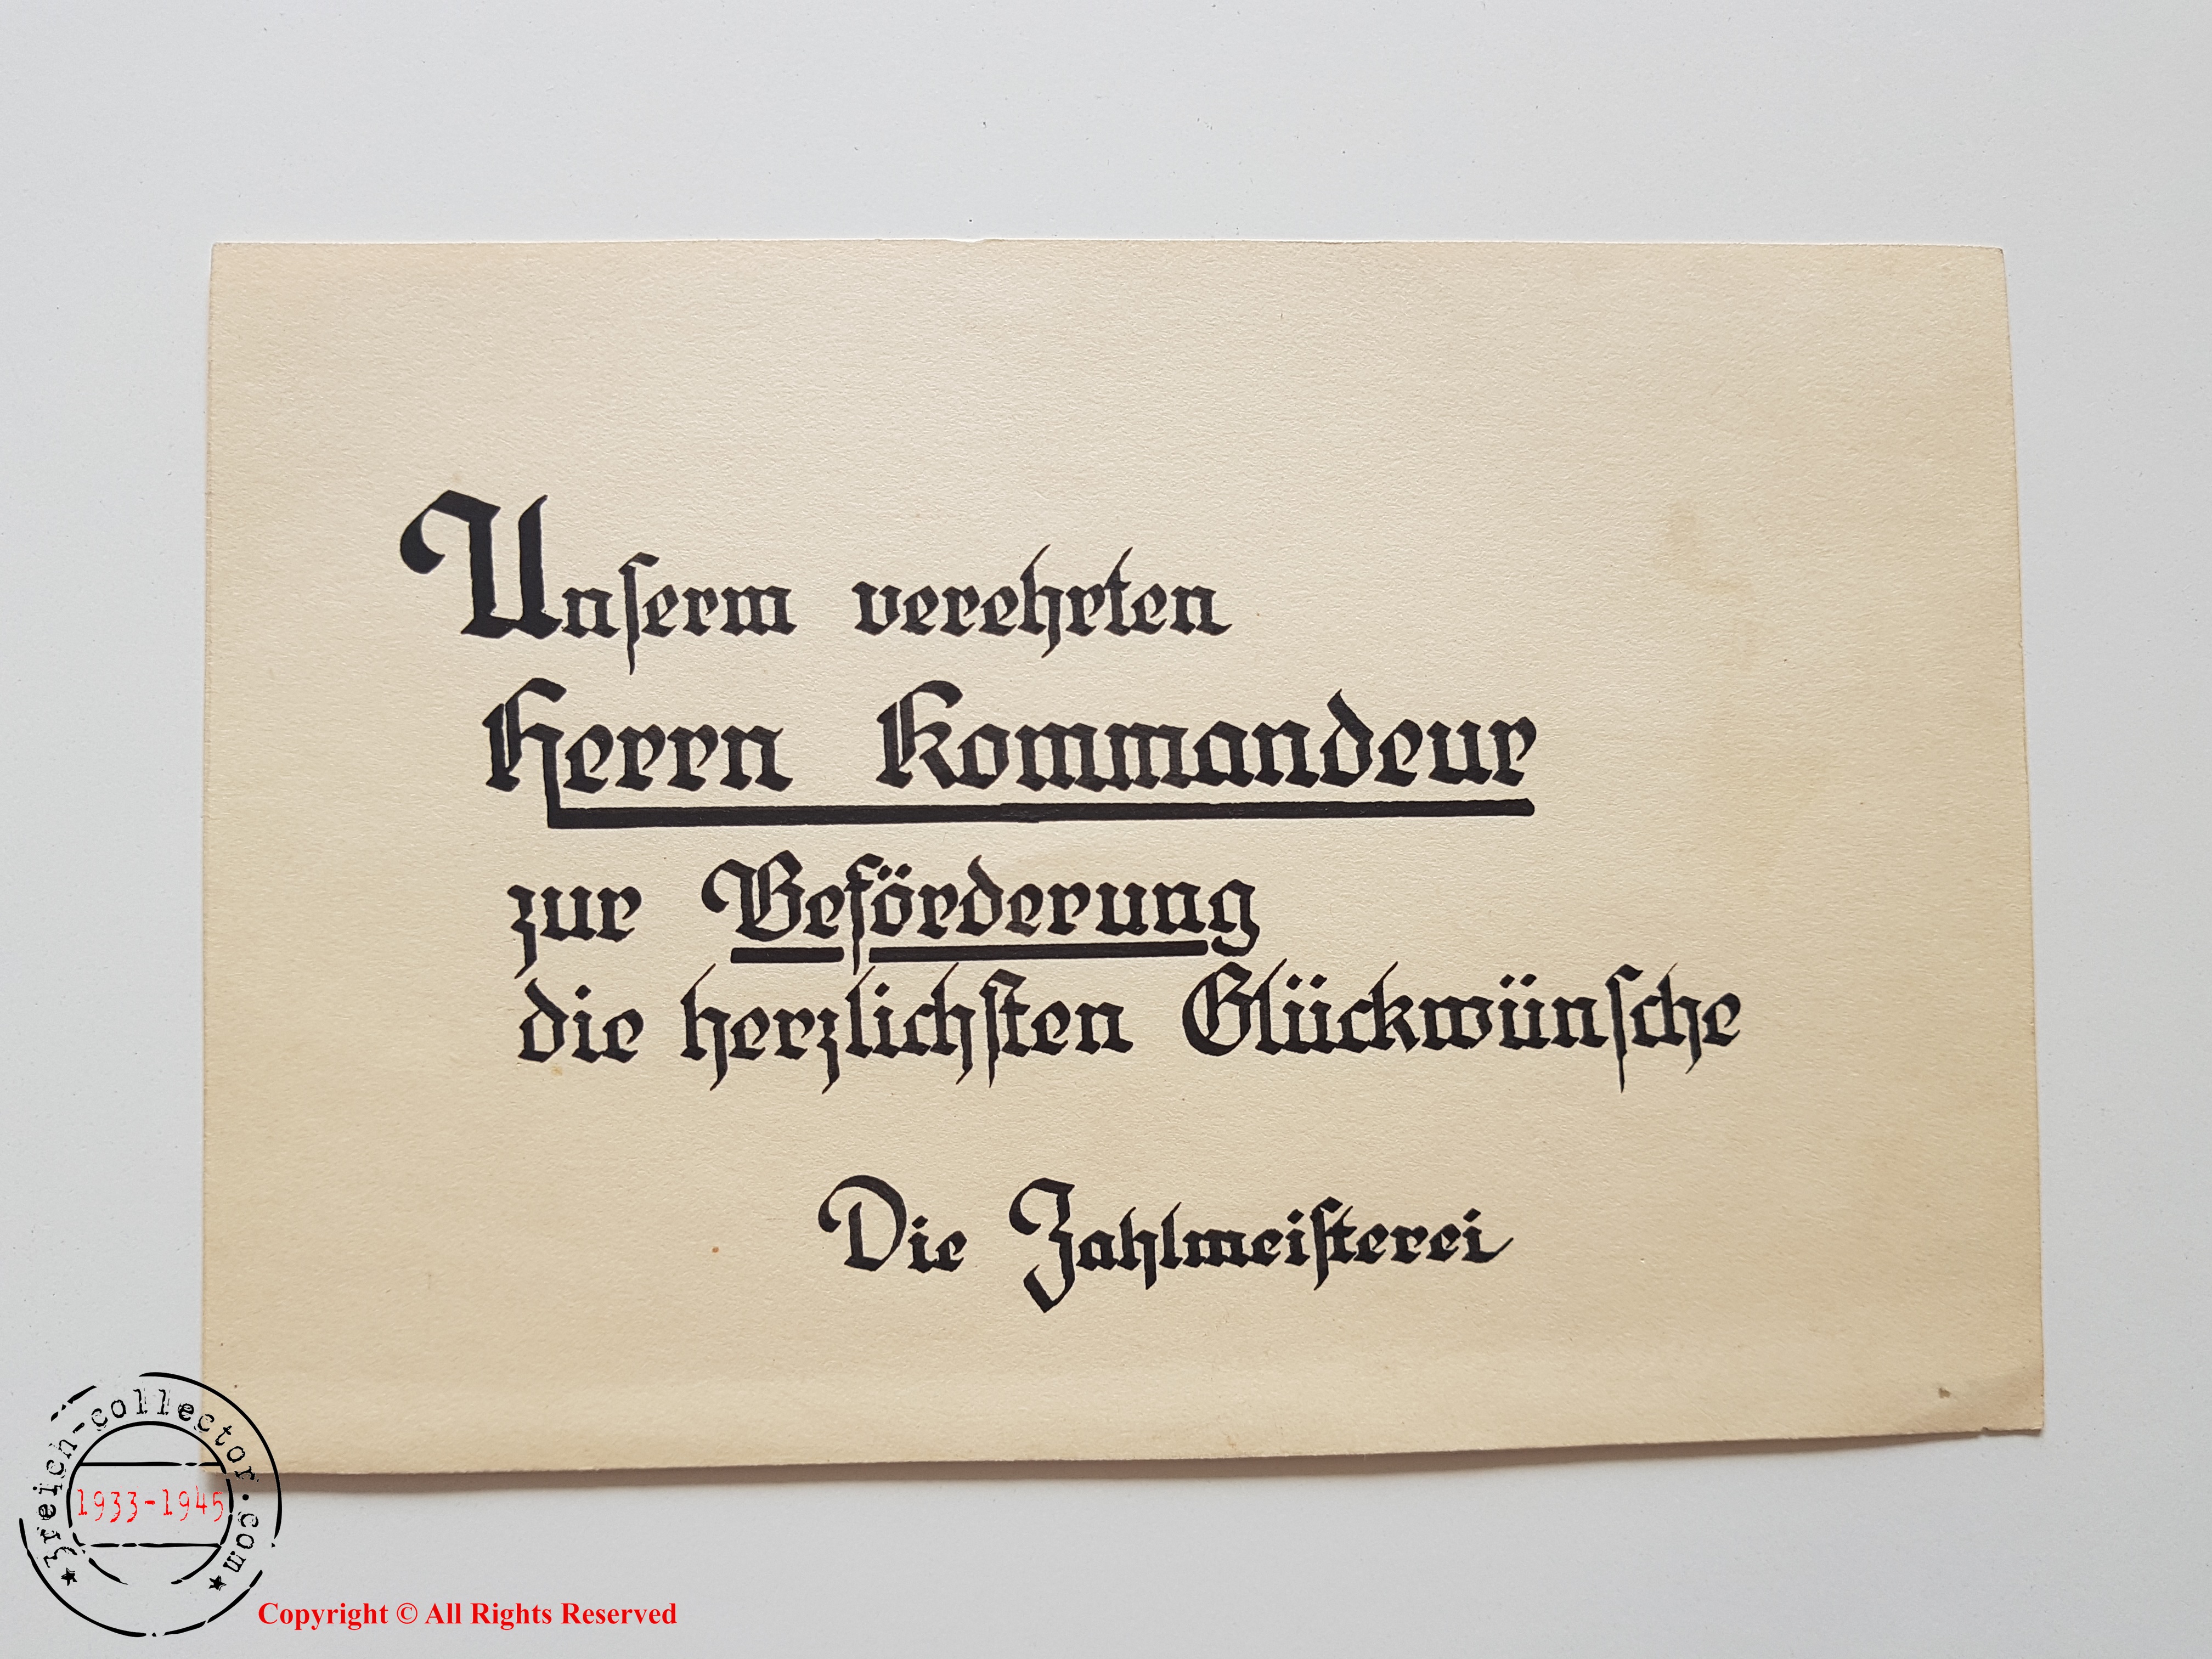 Unserm verehrten
Herrn Kommandeur
zur Beförderung
die herzlichsten Glückwünsche
Die Zahlmeisterei
3reich-collector.com
1933-1945
Copyright © All Rights Reserved